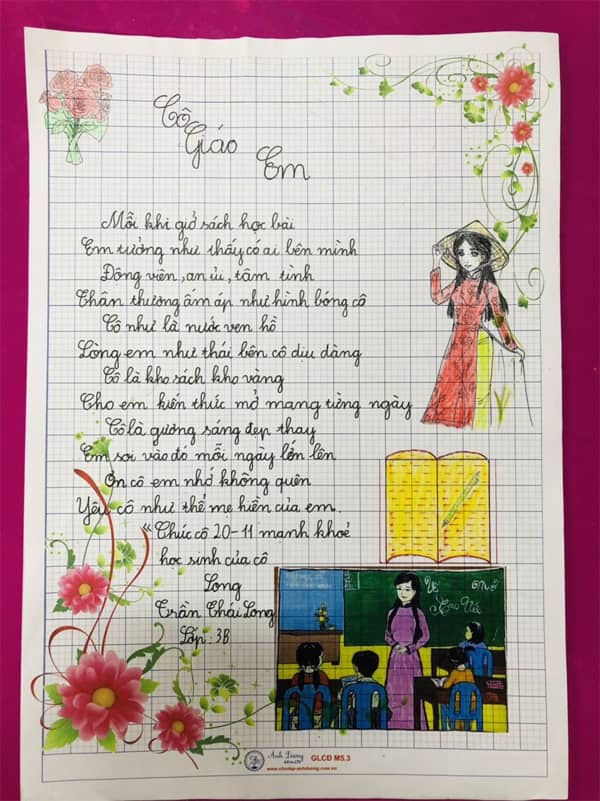 Cô
Giáo
Em
Mỗi khi giở sách học bài
Em tưởng như thấy có ai bên mình
Động viên, an ủi, tâm tình
Thân thương ấm áp như hình bóng cô
Cô như là nước ven hồ
Lòng em như thái bên cô dịu dàng
Cô là kho sách kho vàng
Cho em kiến thức mở mang từng ngày
Cô là gương sáng đẹp thay
Em soi vào đó mỗi ngày lớn lên
Ơn cô em nhớ không quên
Yêu cô như thể mẹ hiền của em.
"Chúc cô 20-11 mạnh khoẻ
học sinh của cô
Long
Trần Thái Long
Lớp: 3B
Ánh Dương
GLCĐ M5.3